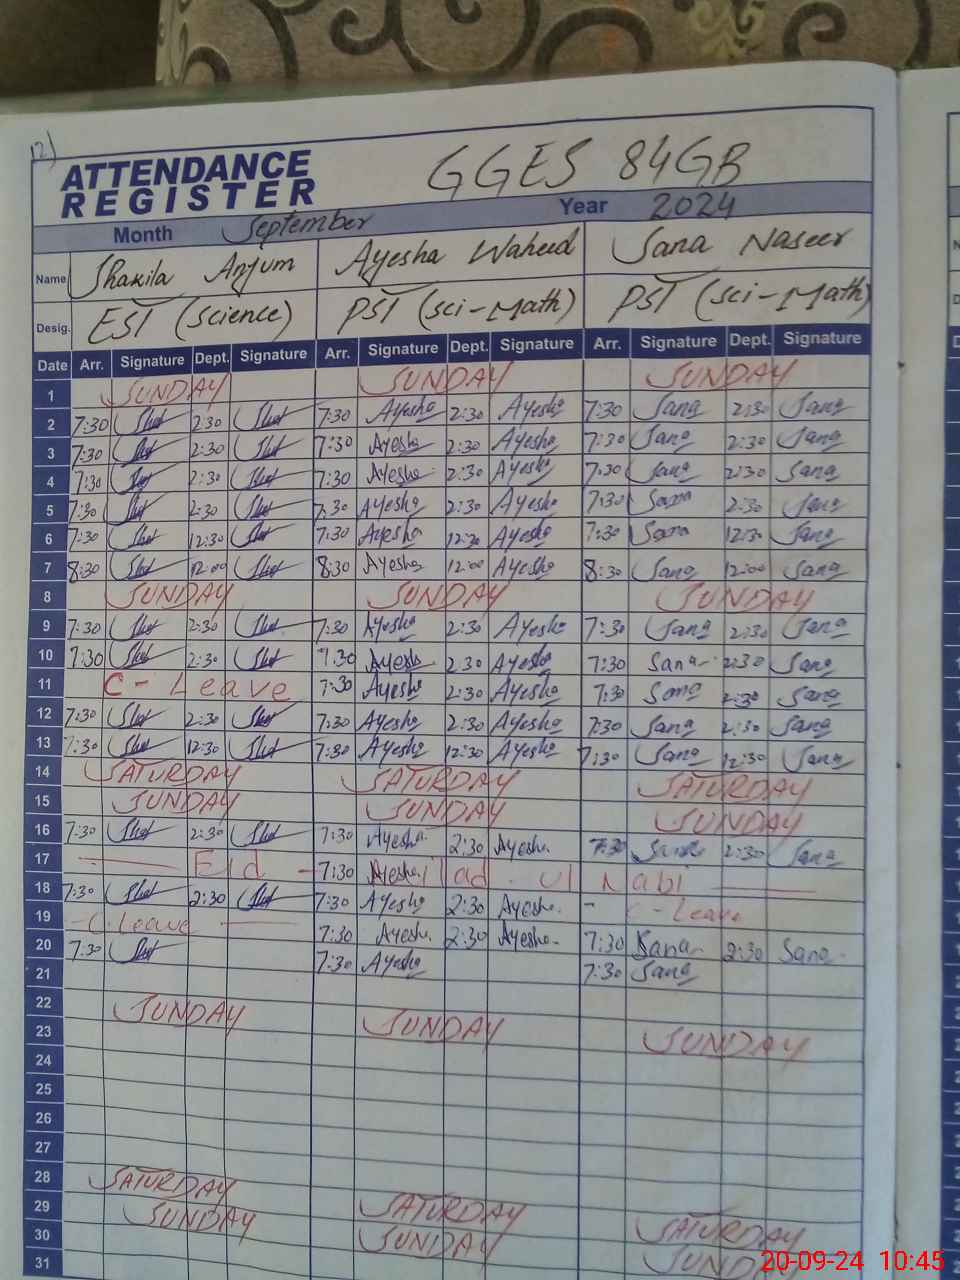 12)
ATTENDANCE
REGISTER
GGES 84GB
Month September Year 2024
Name Shakila Anjum Ayesha Waheed Sana Naseer
Desig. EST (Science) PST (sci-Math) PST (sci-Math)
Date Arr. Signature Dept. Signature Arr. Signature Dept. Signature Arr. Signature Dept. Signature
1 SUNDAY SUNDAY SUNDAY
2 7:30 2:30 7:30 Ayesha 2:30 Ayesha 7:30 Sana 2:30 Sana
3 7:30 2:30 7:30 Ayesha 2:30 Ayesha 7:30 Sana 2:30 Sana
4 7:30 2:30 7:30 Ayesha 2:30 Ayesha 7:30 Sana 2:30 Sana
5 7:30 2:30 7:30 Ayesha 2:30 Ayesha 7:30 Sana 2:30 Sana
6 7:30 12:30 7:30 Ayesha 12:30 Ayesha 7:30 Sana 12:30 Sana
7 8:30 12:00 8:30 Ayesha 12:00 Ayesha 8:30 Sana 12:00 Sana
8 SUNDAY SUNDAY SUNDAY
9 7:30 2:30 7:30 Ayesha 2:30 Ayesha 7:30 Sana 2:30 Sana
10 7:30 2:30 7:30 Ayesha 2:30 Ayesha 7:30 Sana 2:30 Sana
11 C-Leave 7:30 Ayesha 2:30 Ayesha 7:30 Sana 2:30 Sana
12 7:30 2:30 7:30 Ayesha 2:30 Ayesha 7:30 Sana 2:30 Sana
13 7:30 12:30 7:30 Ayesha 12:30 Ayesha 7:30 Sana 12:30 Sana
14 SATURDAY SATURDAY SATURDAY
15 SUNDAY SUNDAY SUNDAY
16 7:30 2:30 7:30 Ayesha 2:30 Ayesha 7:30 Sana 2:30 Sana
17 Eid 7:30 Ayesha ilad ul Nabi
18 7:30 2:30 7:30 Ayesha 2:30 Ayesha - C-Leave
19 C.Leave 7:30 Ayesha 2:30 Ayesha 7:30 Sana 2:30 Sana
20 7:30 7:30 Ayesha 7:30 Sana
21
22 SUNDAY SUNDAY
23 SUNDAY
24
25
26
27
28 SATURDAY
29 SUNDAY SATURDAY
30 SUNDAY SATURDAY
31 SUND
20-09-24 10:45